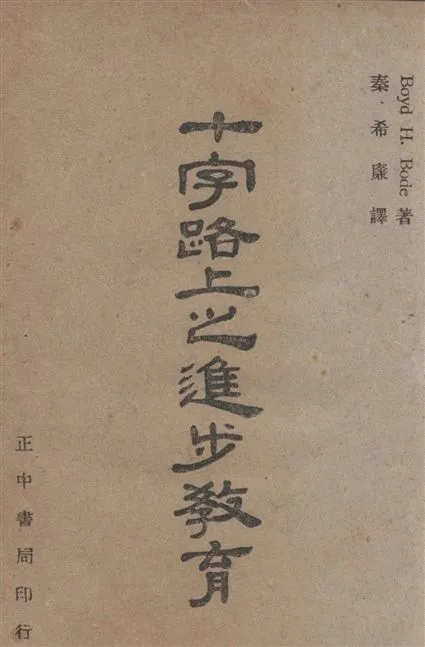 Boyd H. Bode 著
秦希廉譯
十字路上之進步教育
正中書局印行